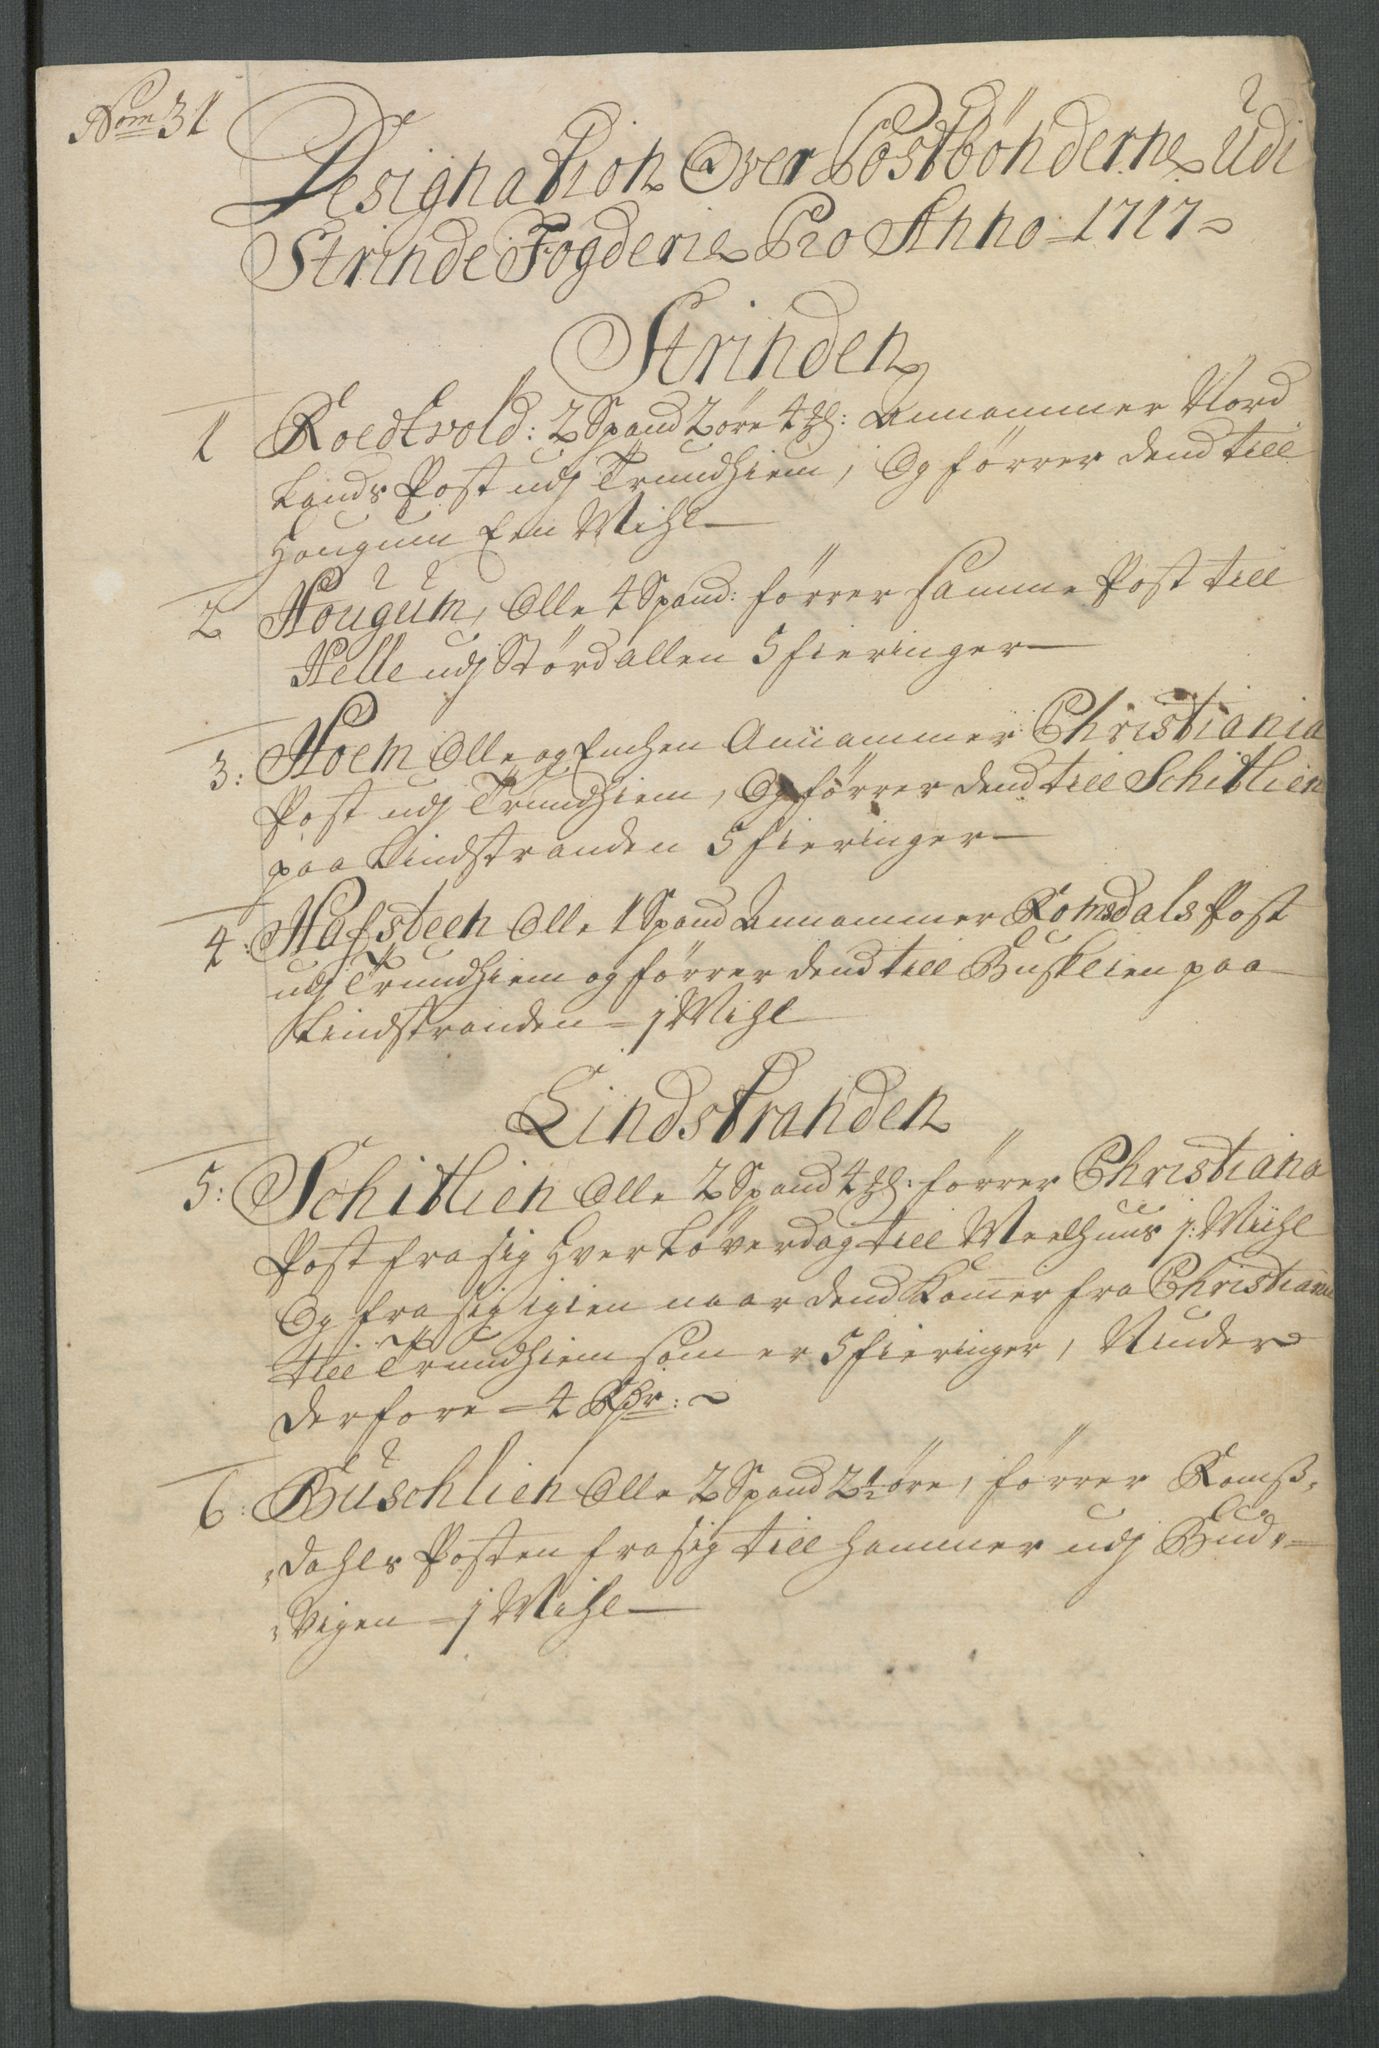 Nom 31
Designation Over Postbönderne Udi
Strinde Fogderie Pro Anno 1717
Strinden
1 Roedtvold: 2 Spand 2 öre 4 Annammer Nord
Lands Post udj Trundhiem, Og förrer dend till
Hougum Een Mihl
2 Hougum, Olle 4 Spand: förrer samme Post till
Helle udj Stördallen 5 fieringer
3: Hoem Olle og Enchen Annammer Christiania
Post udj Trundhiem, Og förrer dend till Schitlien
paa Lindstranden 5 fieringer
4: Hafsteen Olle 1 Spand Annammer Romsdals Post
udj Trundhiem og förrer dend till Busklien paa
Lindstranden = j Mihl
Lindstranden
5: Schitlien Olle 2 Spand 4 förrer Christiana
Post fra sig Hver Löverdag till Meelhuus j: Miihl
Og fra sig igien naar dend Komer fra Christiania
till Trundhiem som er 5 fieringer, Nyder
derfore = 4 Rdr:
6: Buschlien Olle 2 Spand 2 1/2 öre, förrer Romß„
„dahls Posten fra sig till Hammer udj Bud„
„Vigen = j Mihl